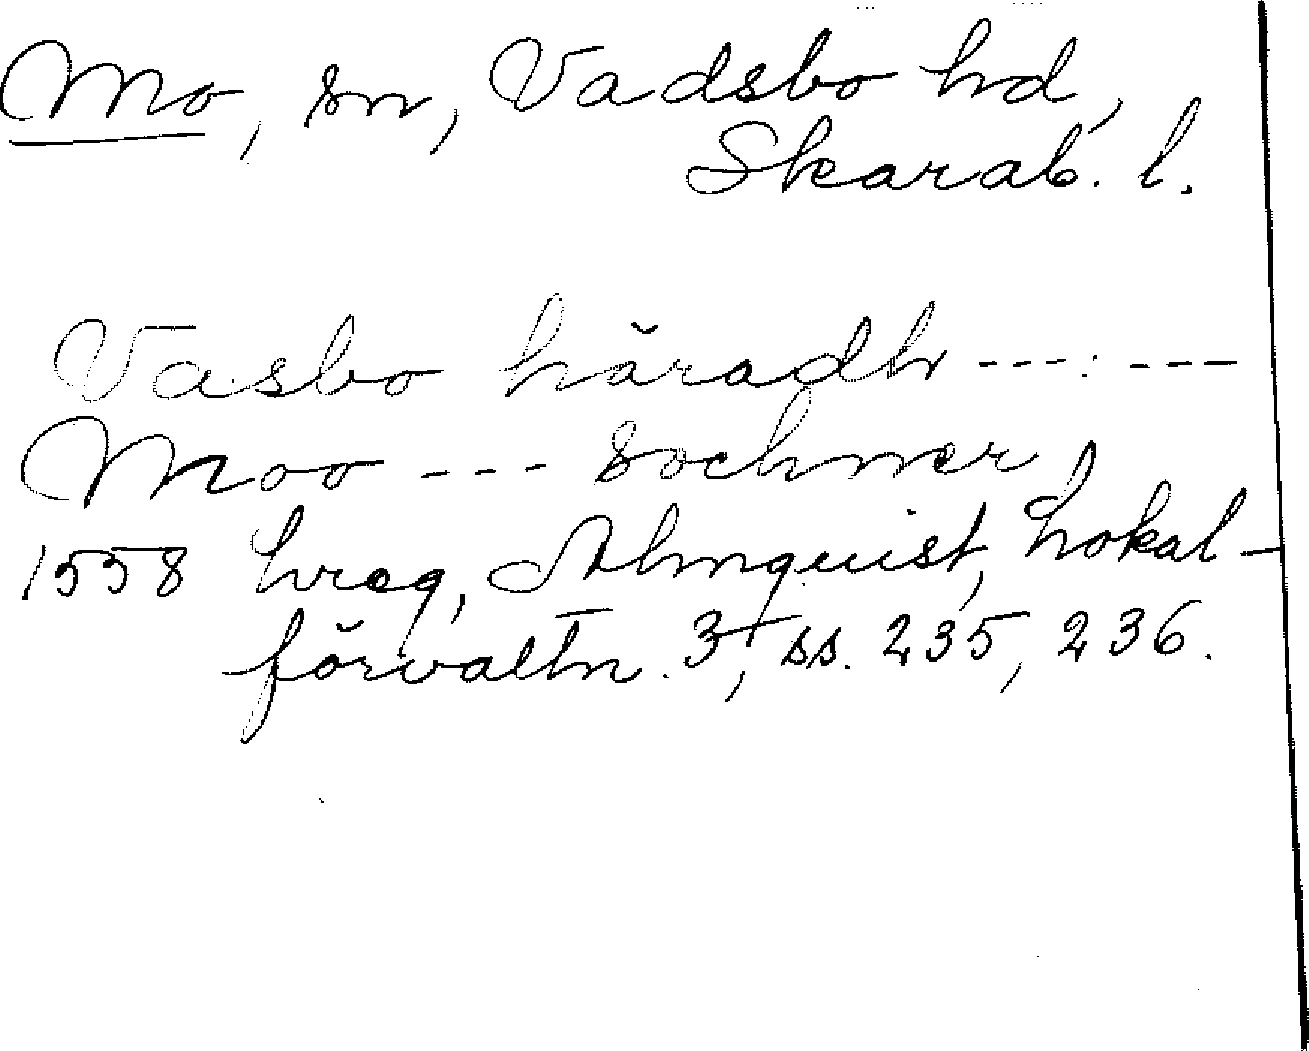 Mo, sn, Vadsbo hd,
Skarab. l.
Vasbo häradh --- . ---
Moo --- sochner
1558 hreg, Almquist, Lokal-
förvaltn. 3, ss. 235, 236.